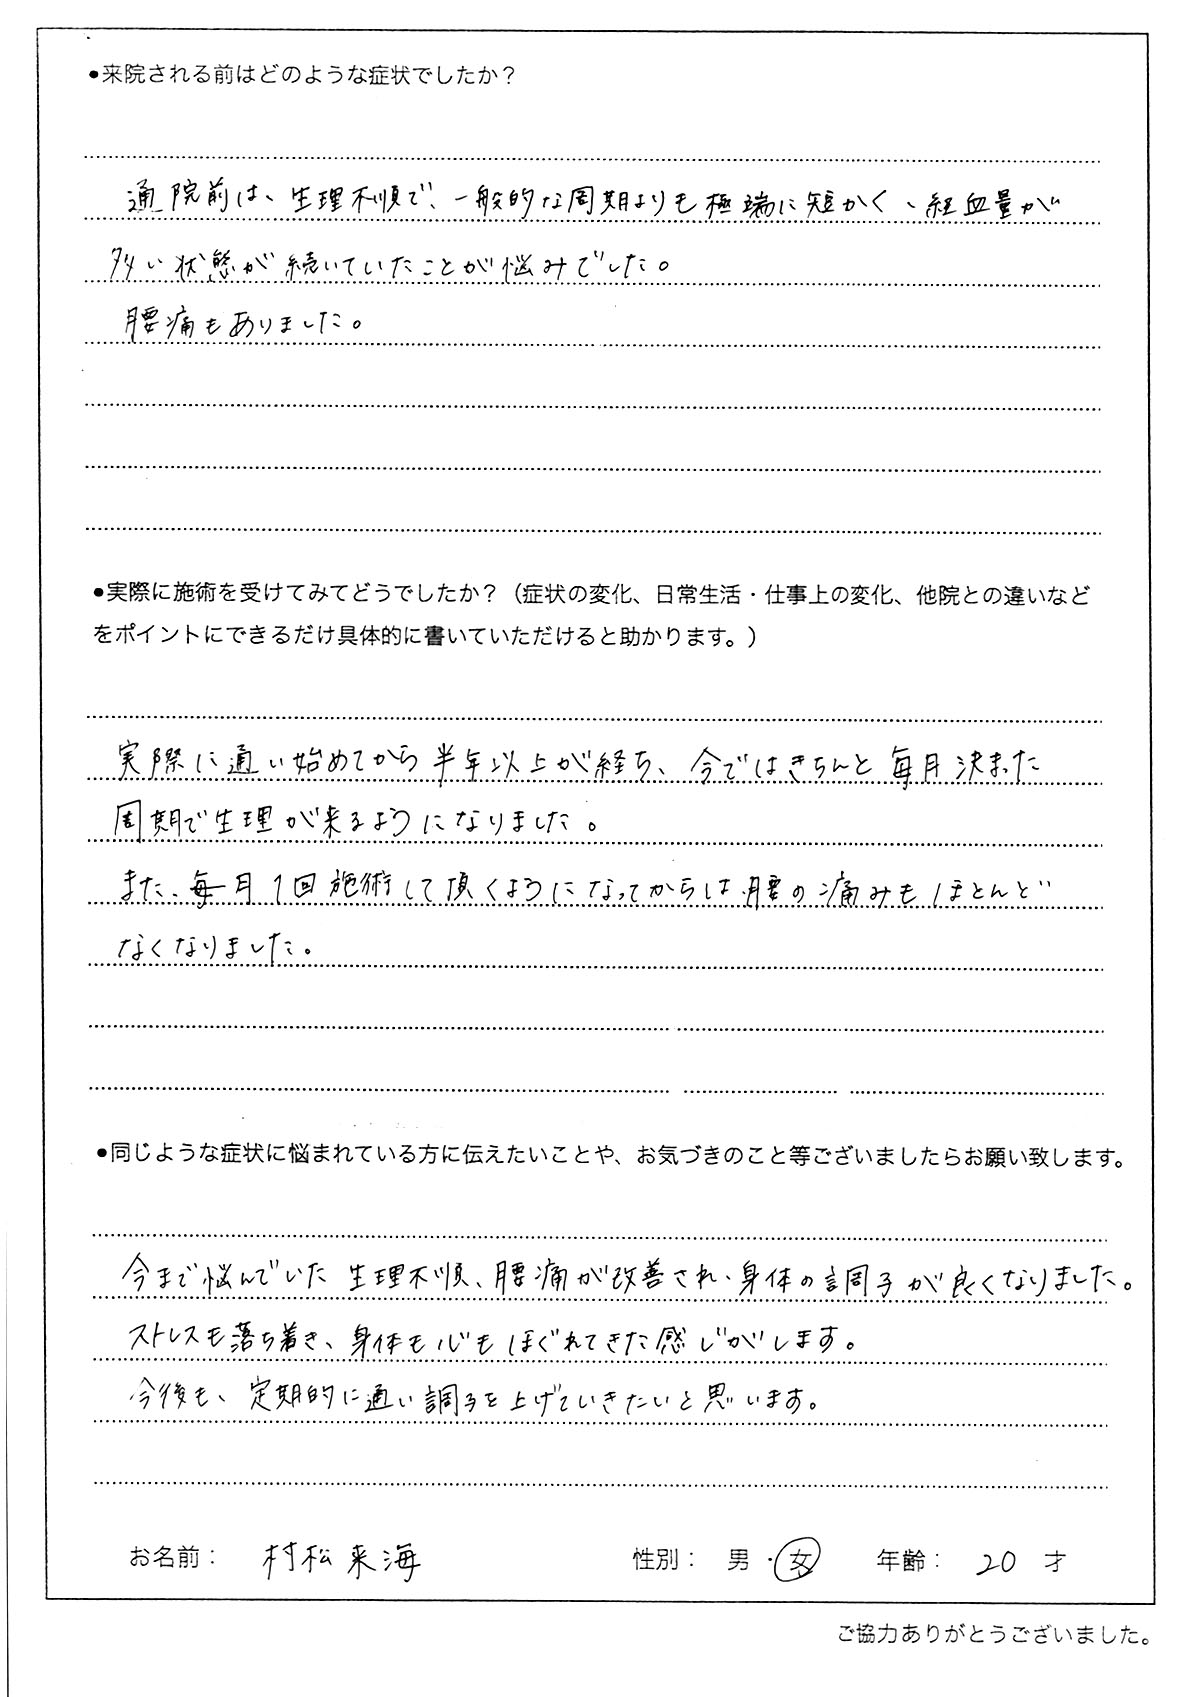 ●来院される前はどのような症状でしたか？
通院前は、生理不順で、一般的な周期よりも極端に短かく、経血量が
多い状態が続いていたことが悩みでした。
腰痛もありました。
●実際に施術を受けてみてどうでしたか？（症状の変化、日常生活・仕事上の変化、他院との違いなど
をポイントにできるだけ具体的に書いていただけると助かります。）
実際に通い始めてから半年以上が経ち、今ではきちんと毎月決まった
周期で生理が来るようになりました。
また、毎月1回施術して頂くようになってからは腰の痛みもほとんど
なくなりました。
●同じような症状に悩まれている方に伝えたいことや、お気づきのこと等ございましたらお願い致します。
今まで悩んでいた生理不順、腰痛が改善され、身体の調子が良くなりました。
ストレスも落ち着き、身体も心もほぐれてきた感じがします。
今後も、定期的に通い調子を上げていきたいと思います。
お名前： 村松来海 性別： 男・女 年齢： 20 才
ご協力ありがとうございました。